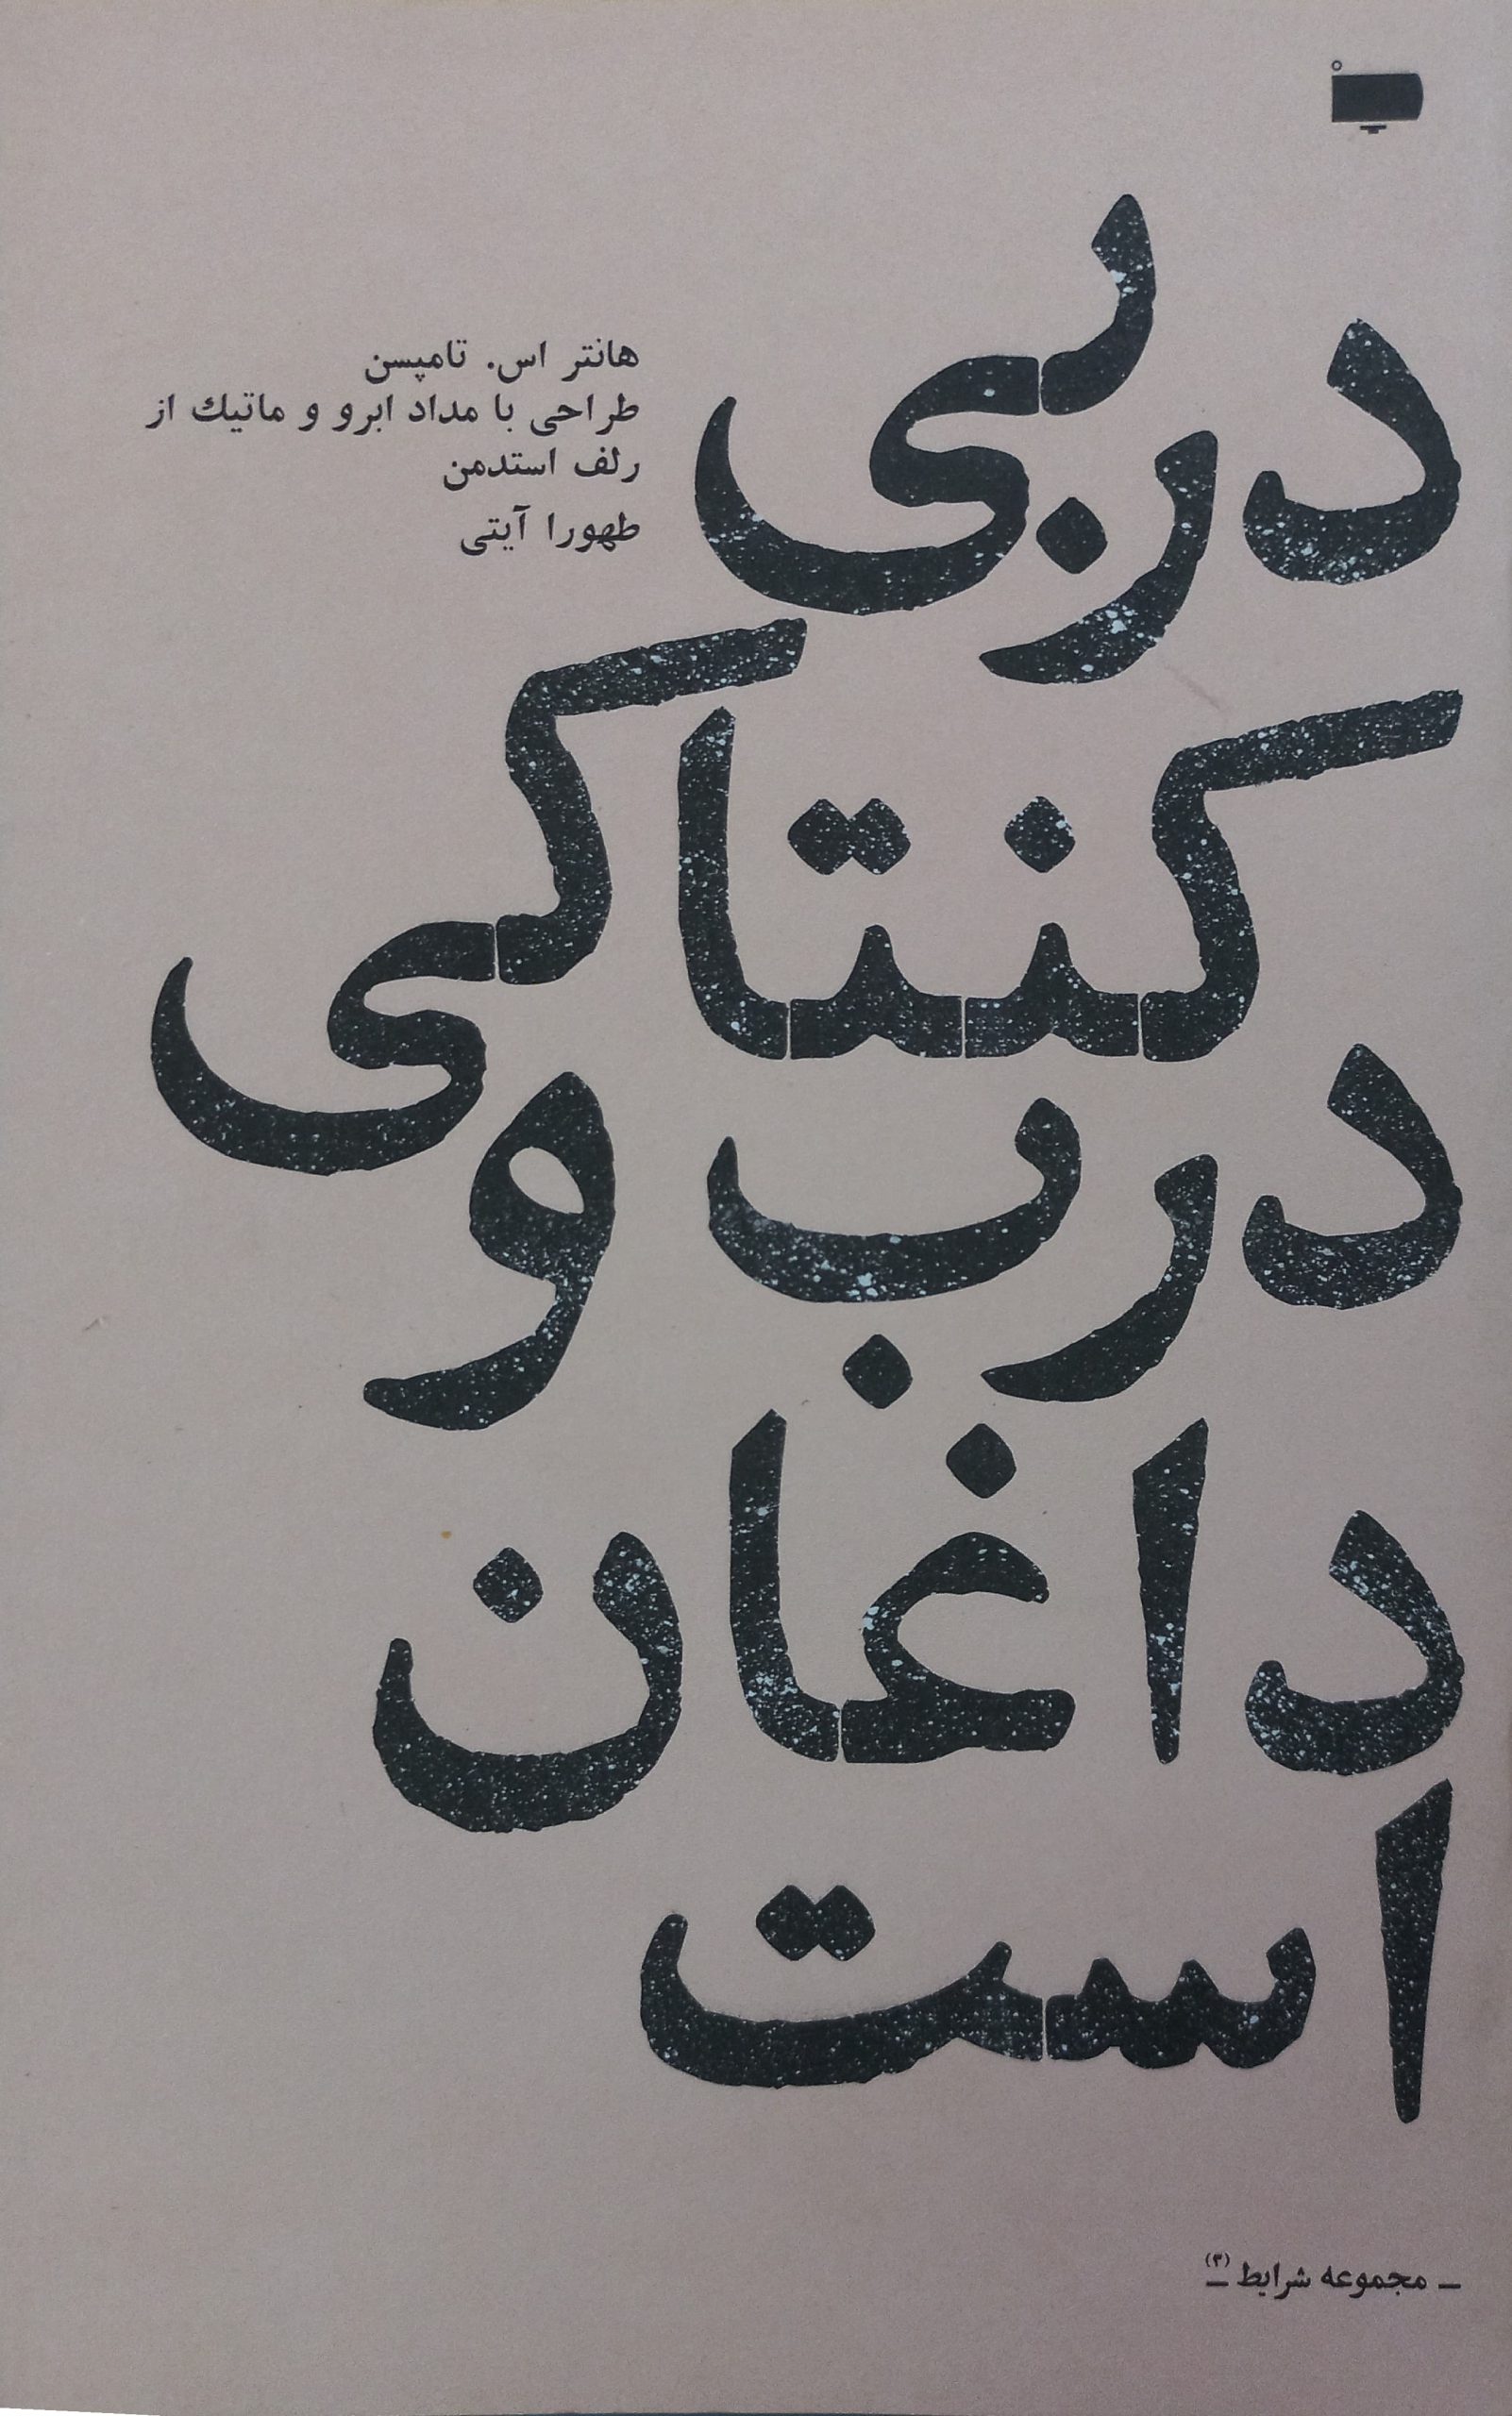 دربی
کنتاکی
درب و
داغان
است
هانتر اس. تامپسن
طراحی با مداد ابرو و ماتیك از
رلف استدمن
طهورا آیتی
ـ مجموعه شرایط (۳) ـ